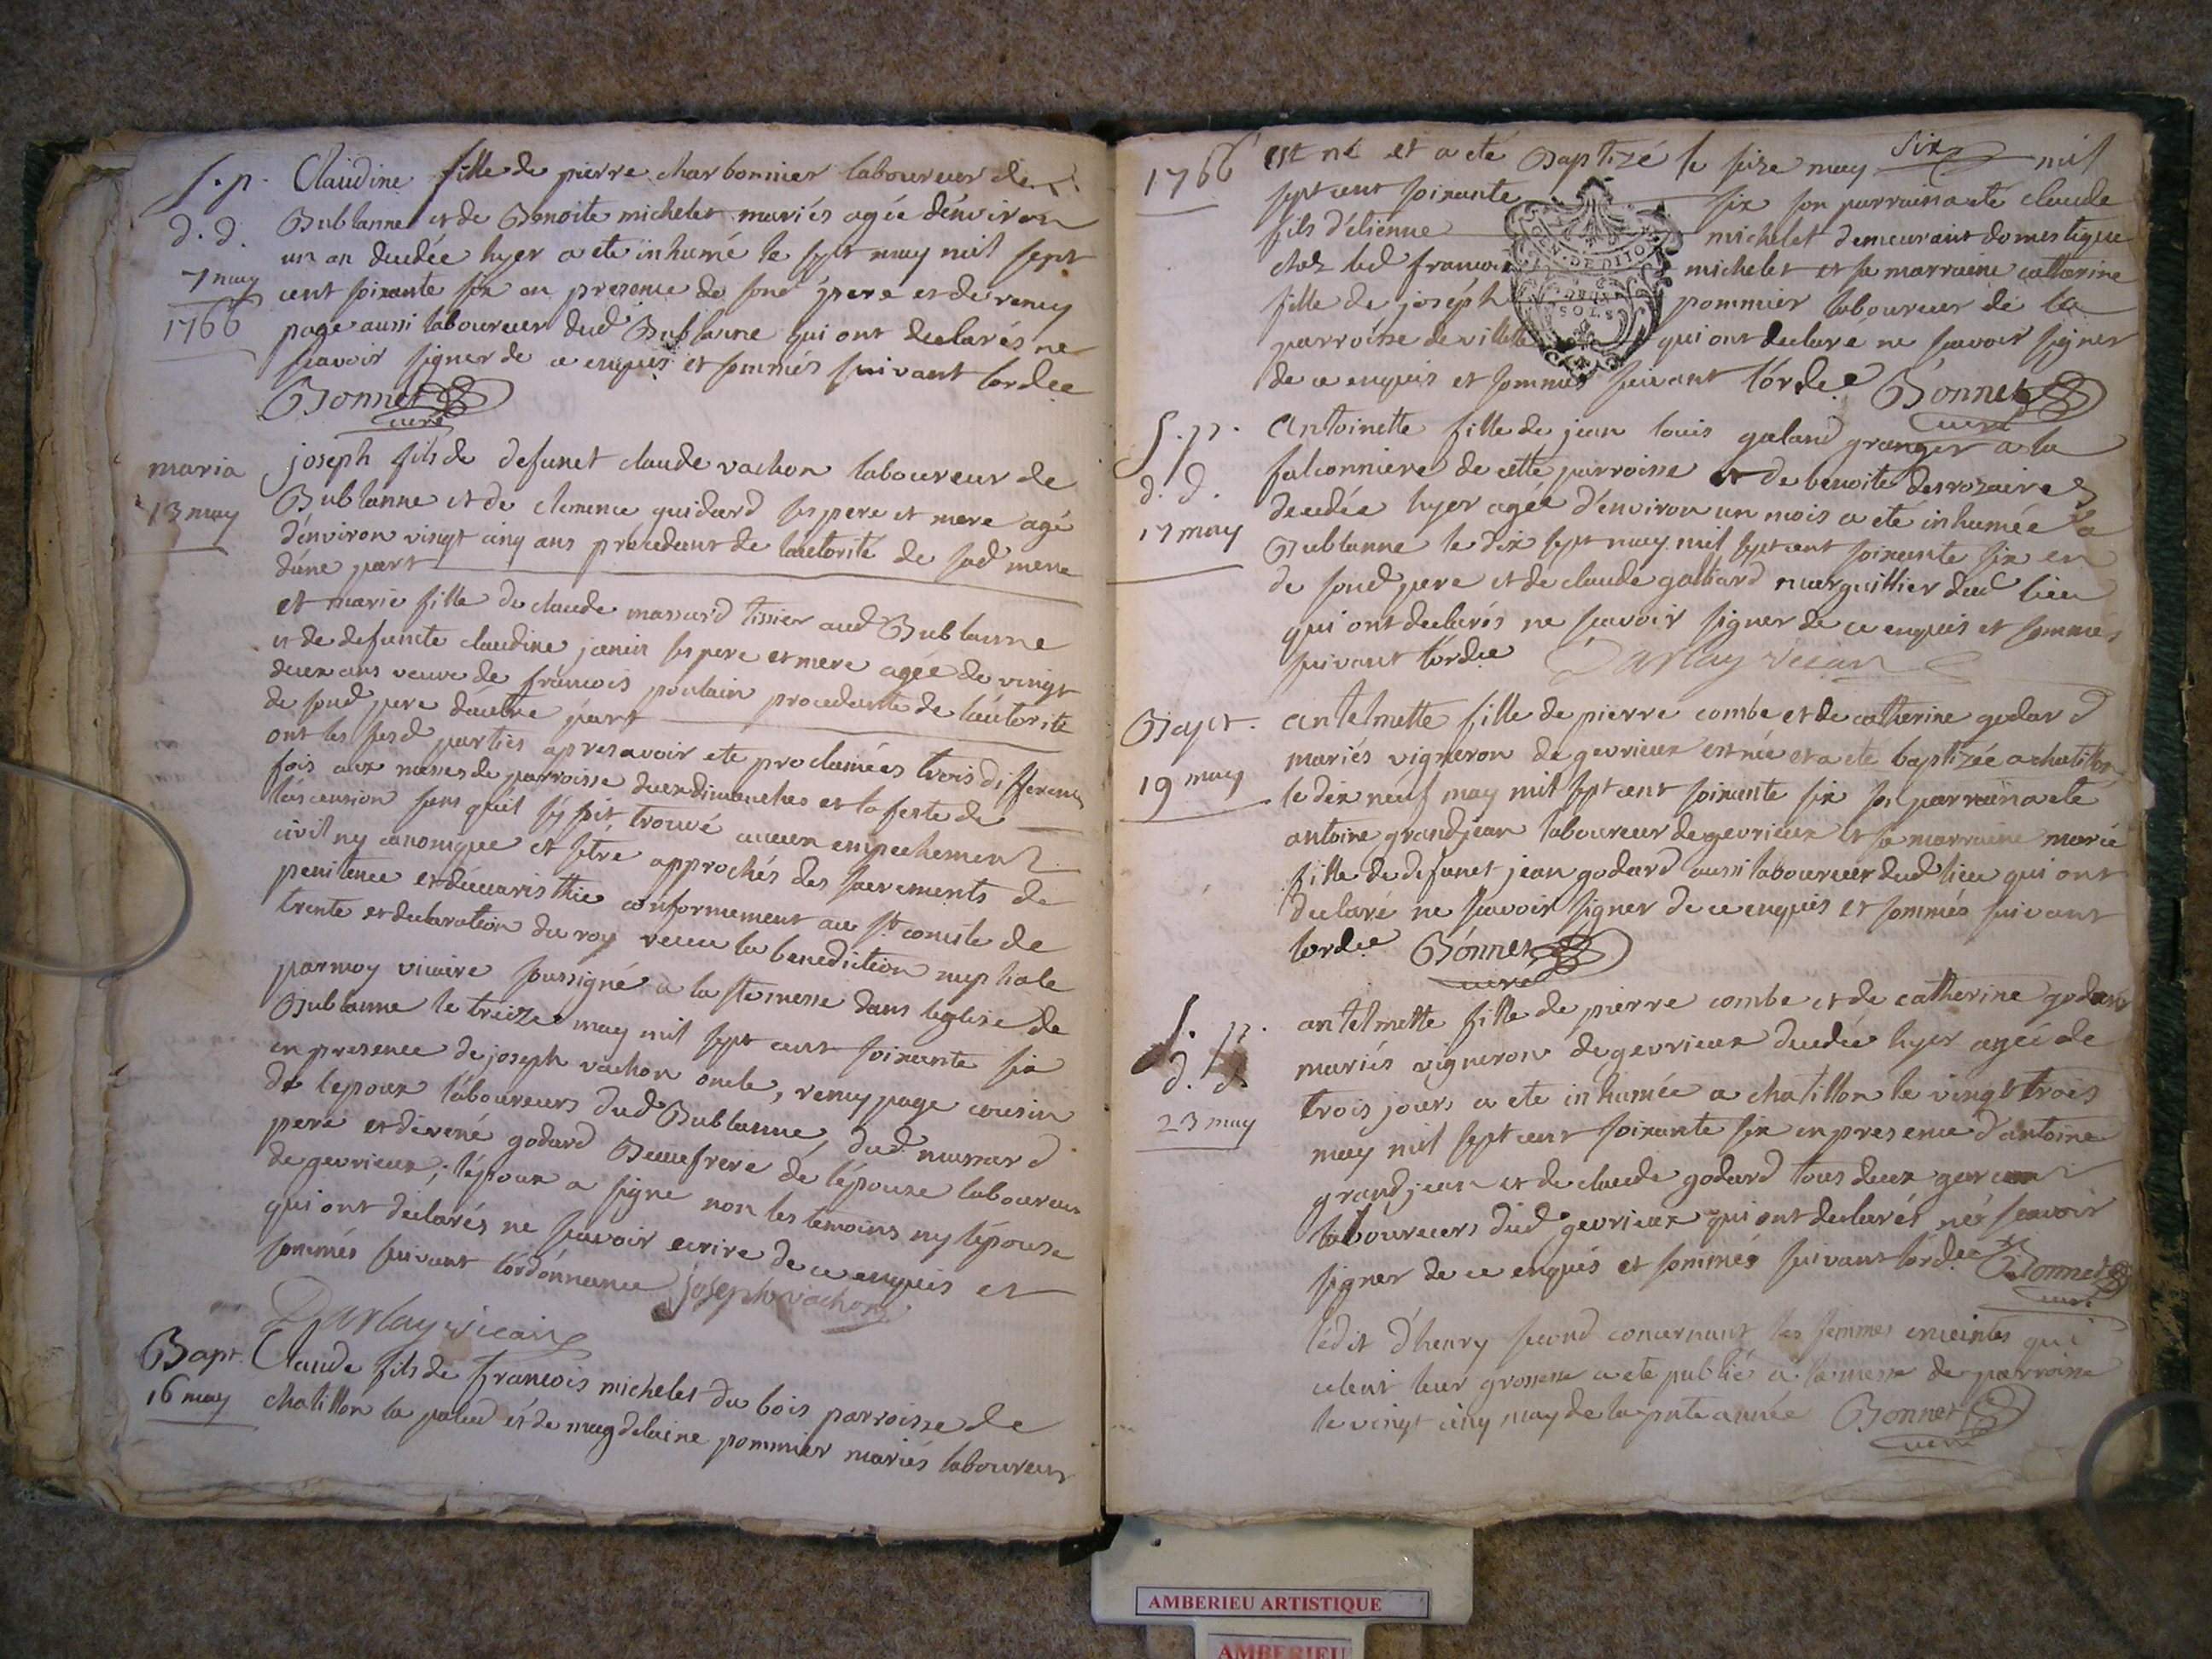 s. p.
d. d.
7 may
1766
Claudine fille de pierre charbonnier laboureur de
Bublanne et de Benoite michelet mariés agée d'environ
un an decedée hyer a eté inhumé le sept may mil sept
cent soixante six en presence de sond pere et de remy
page aussi laboureur dud Bublanne qui ont declarés ne
scavoir signer de ce enquis et sommés suivant lordce
Bonnet
curé
maria
13 may
joseph fils de defunct claude vachon laboureur de
Bublanne et de clemence guidard ses pere et mere agé
d'environ vingt cinq ans procedant de lauctorité de sad mere
d'une part
et marie fille de claude massard tissier aud Bublanne
et de defuncte claudine janin ses pere et mere agée de vingt
deux ans veuve de francois poulain procedante de l'autorité
de sond pere d'autre part
ont les susd parties apres avoir eté proclamées trois differentes
fois aux messes de parroisse deux dimanches et la feste de
l'ascension sans qu'il s'y soit trouvé aucun empechement
civil ny canonique et s'etre approchés des sacrements de
penitence et d'eucaristhie conformement au st concile de
trente et declaration du roy receu la benediction nuptiale
par moy vicaire soussigné a la ste messe dans leglise de
Bublanne le treize may mil sept cent soixante six
en presence de joseph vachon oncle, remy page cousin
de l'epoux laboureurs dud Bublanne, dud massard
pere et de rené godard Beaufrere de l'épouse laboureur
de gevrieux; l'époux a signe non les temoins ny l'épouse
qui ont declarés ne scavoir ecrire de ce enquis et
sommés suivant l'ordonnance joseph vachon
Darlay vicaire
Bapt.
16 may
Claude fils de francois michelet du bois parroisse de
chatillon la palud et de magdelaine pommier mariés laboureur
1766
est né et a eté Baptizé le seize may six mil
sept cent soixante six son parrain a eté claude
fils d'étienne michelet demeurant domestique
chez led francois michelet et sa marraine catherine
fille de joseph pommier laboureur de la
parroisse de villette qui ont declaré ne scavoir signer
de ce enquis et sommés suivant l'ordce Bonnet
curé
GEN. DE DIJON
SOLS
s. p.
d. d.
17 may
Antoinette fille de jean louis galand granger a la
falconniere de cette parroisse et de benoite desrozaires
decedée hyer agée d'environ un mois a eté inhumée a
Bublanne le dix sept may mil sept cent soixante six en
de sond pere et de claude galliard marguillier dud lieu
qui ont declarés ne scavoir signer de ce enquis et sommés
suivant lordce Darlay vicair
Bapt.
19 may
antelmette fille de pierre combe et de catherine godard
mariés vigneron de gevrieux est née et a eté baptizée a chatillon
le dix neuf may mil sept cent soixante six son parrain a eté
antoine grandjean laboureur de gevrieux et sa marraine marie
fille de defunct jean godard aussi laboureur dud lieu qui ont
declaré ne scavoir signer de ce enquis et sommés suivant
lordce Bonnet
curé
s. p.
d. d.
23 may
antelmette fille de pierre combe et de catherine godard
mariés vigneron de gevrieux decedée hyer agée de
trois jours a eté inhumée a chatillon le vingt trois
may mil sept cent soixante six en presence d'antoine
grandjean et de claude godard tous deux garcons
laboureurs dud gevrieux qui ont declarés ne scavoir
signer de ce enquis et sommés suivant lordce Bonnet
curé
lédit d'henry second concernant les femmes enceintes qui
celent leur grossesse a eté publié a la messe de parroisse
le vingt cinq may de la pnte année Bonnet
curé
AMBERIEU ARTISTIQUE
AMBERIEU